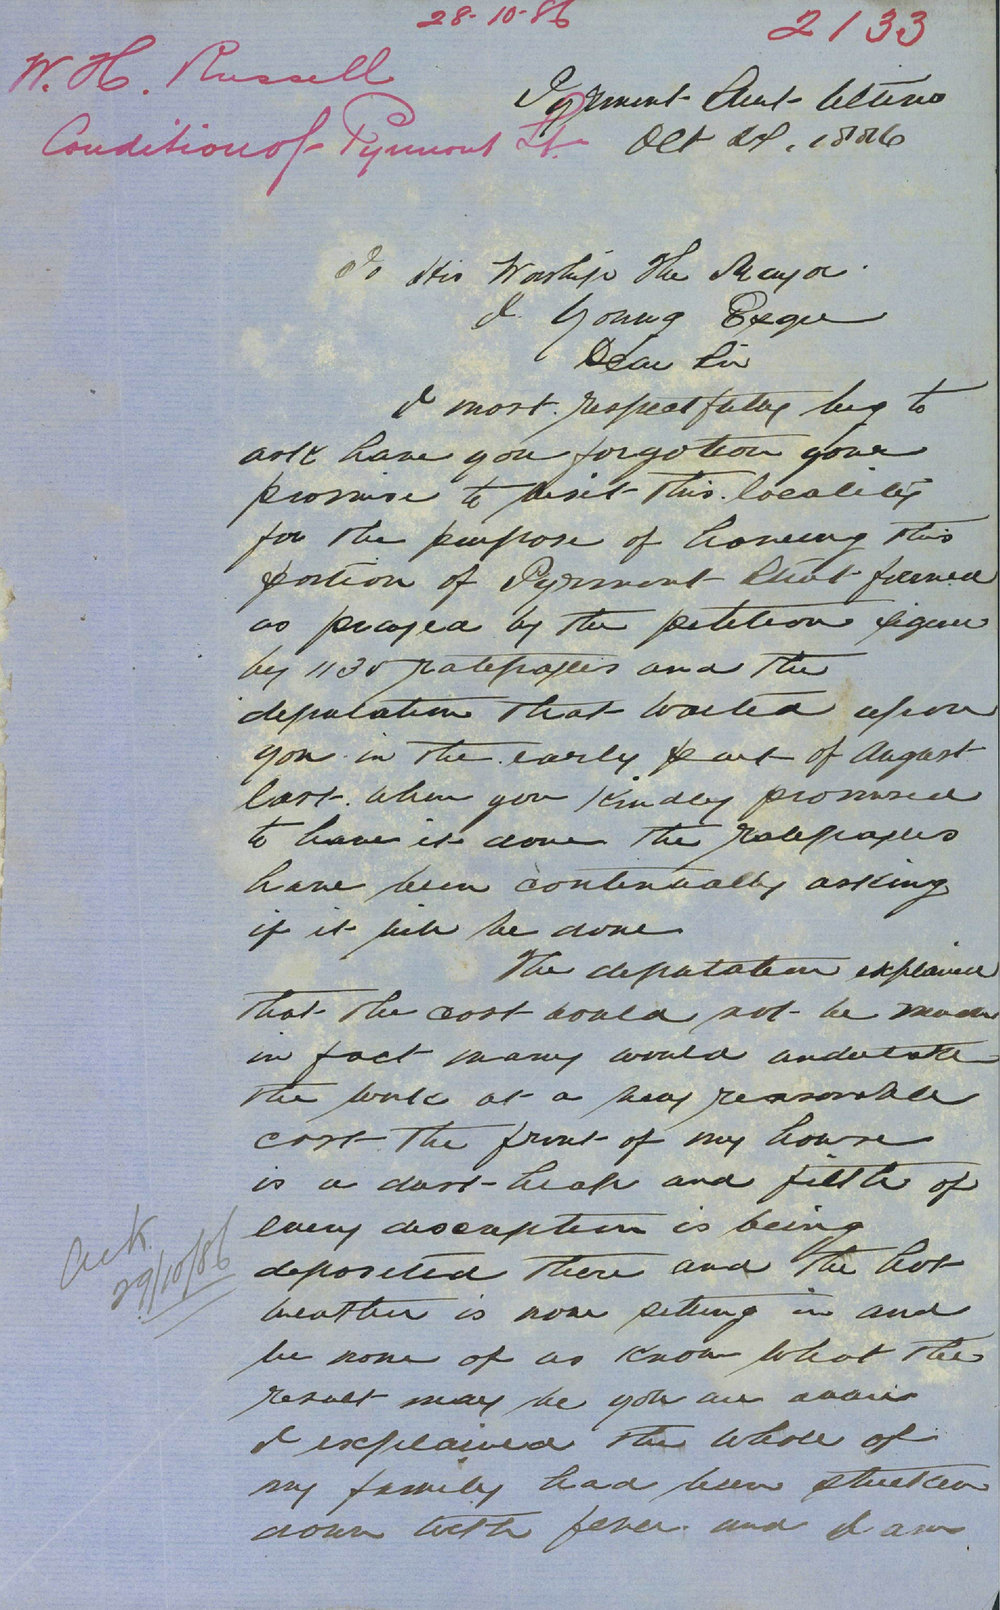 28-10-86
2133
W. H. Russell
Condition of Pyrmont St.
Pyrmont Street Ultimo
Oct 1886
To His Worship The Mayor.
J. Young Esqre
Dear Sir
I most respectfully beg to
ask have you forgotten your
promise to visit this locality
for the purpose of having this
portion of Pyrmont Street formed
as prayed by the petition signed
by ratepayers and the
deputation that waited upon
you in the early part of August
last. when you kindly promised
to have it done The ratepayers
have been continually asking
if it will be done
The deputation explained
that the cost would not be much
in fact many would undertake
the work at a very reasonable
cost The front of my house
is a dust-heap and filth of
every description is being
deposited there and the hot
weather is now setting in and
we none of us know what the
result may be you are aware
I explained the whole of
my family had been stricken
down with fever and I am
Ack.
29/10/86